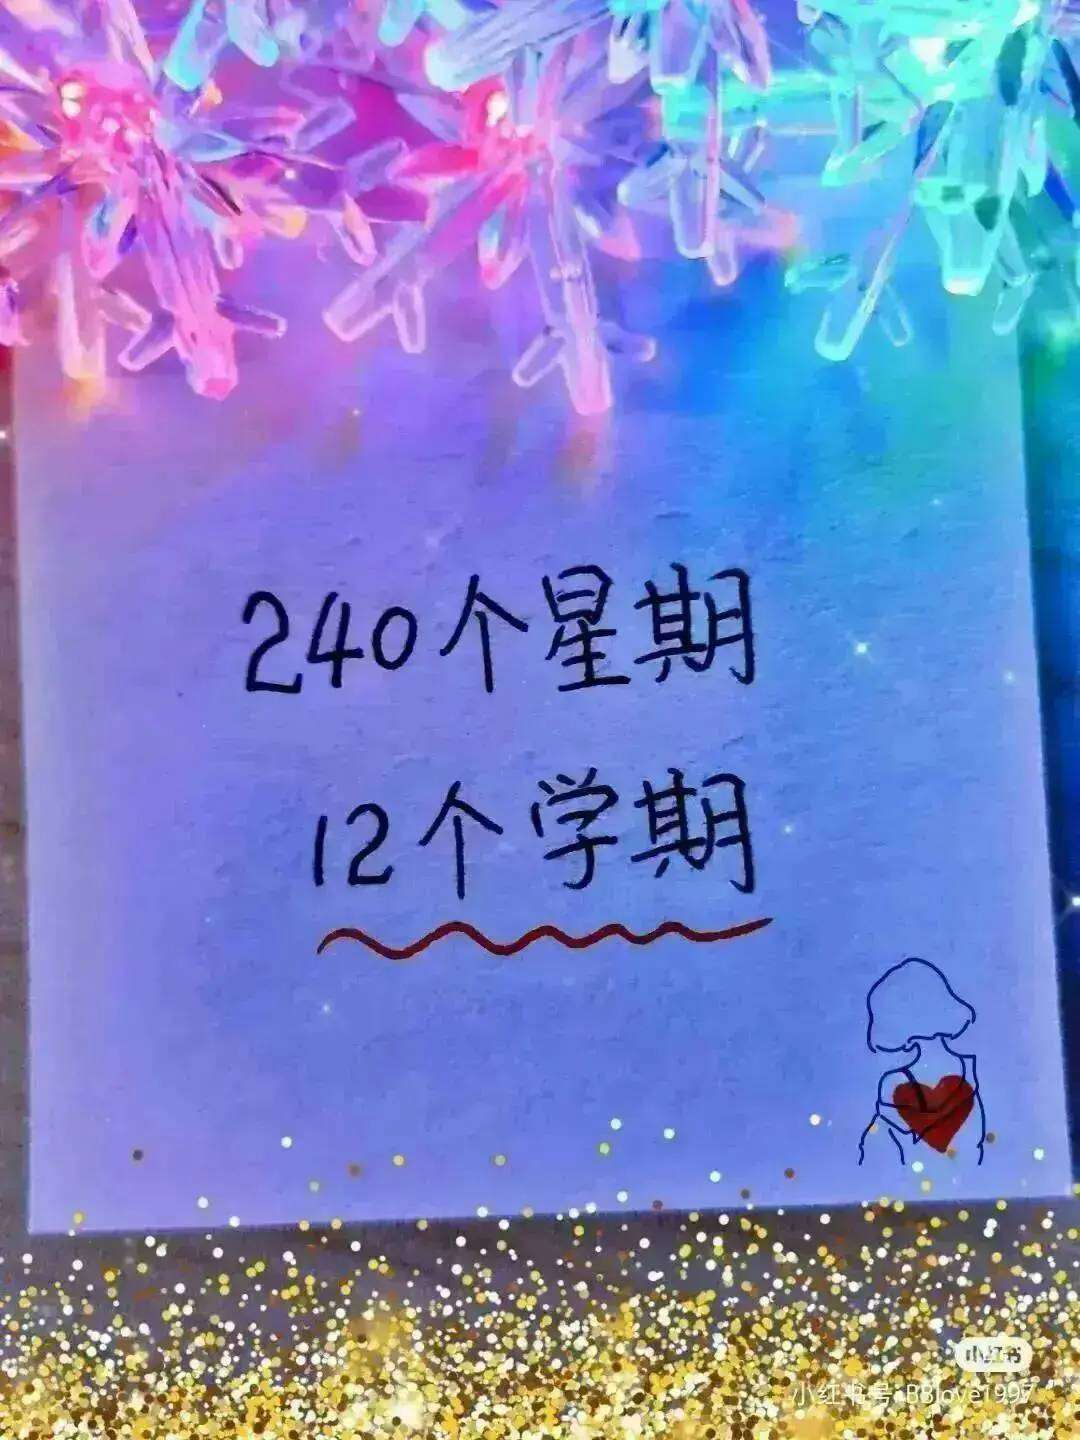 240个星期
12个学期
小红书
小红书号: BBlove1997